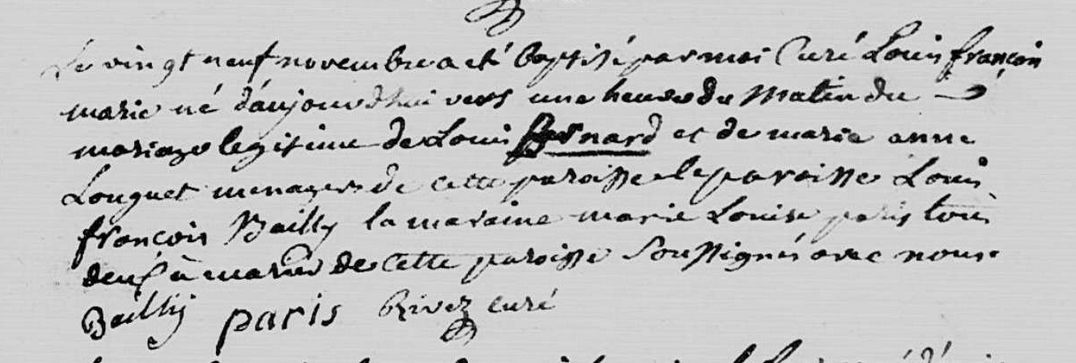 Le vingt neuf novembre a eté baptisé par moi Curé Louis françois
marie né d'aujourd'hui vers une heure du Matin du
mariage legitime de Louis Bernard et de marie anne
Louguet menagers de cette paroisse le paroisse Louis
françois Bailly la maraine marie Louise paris tous
deux à marier de cette paroisse Soussignés avec nous
Bailly paris Rivez curé